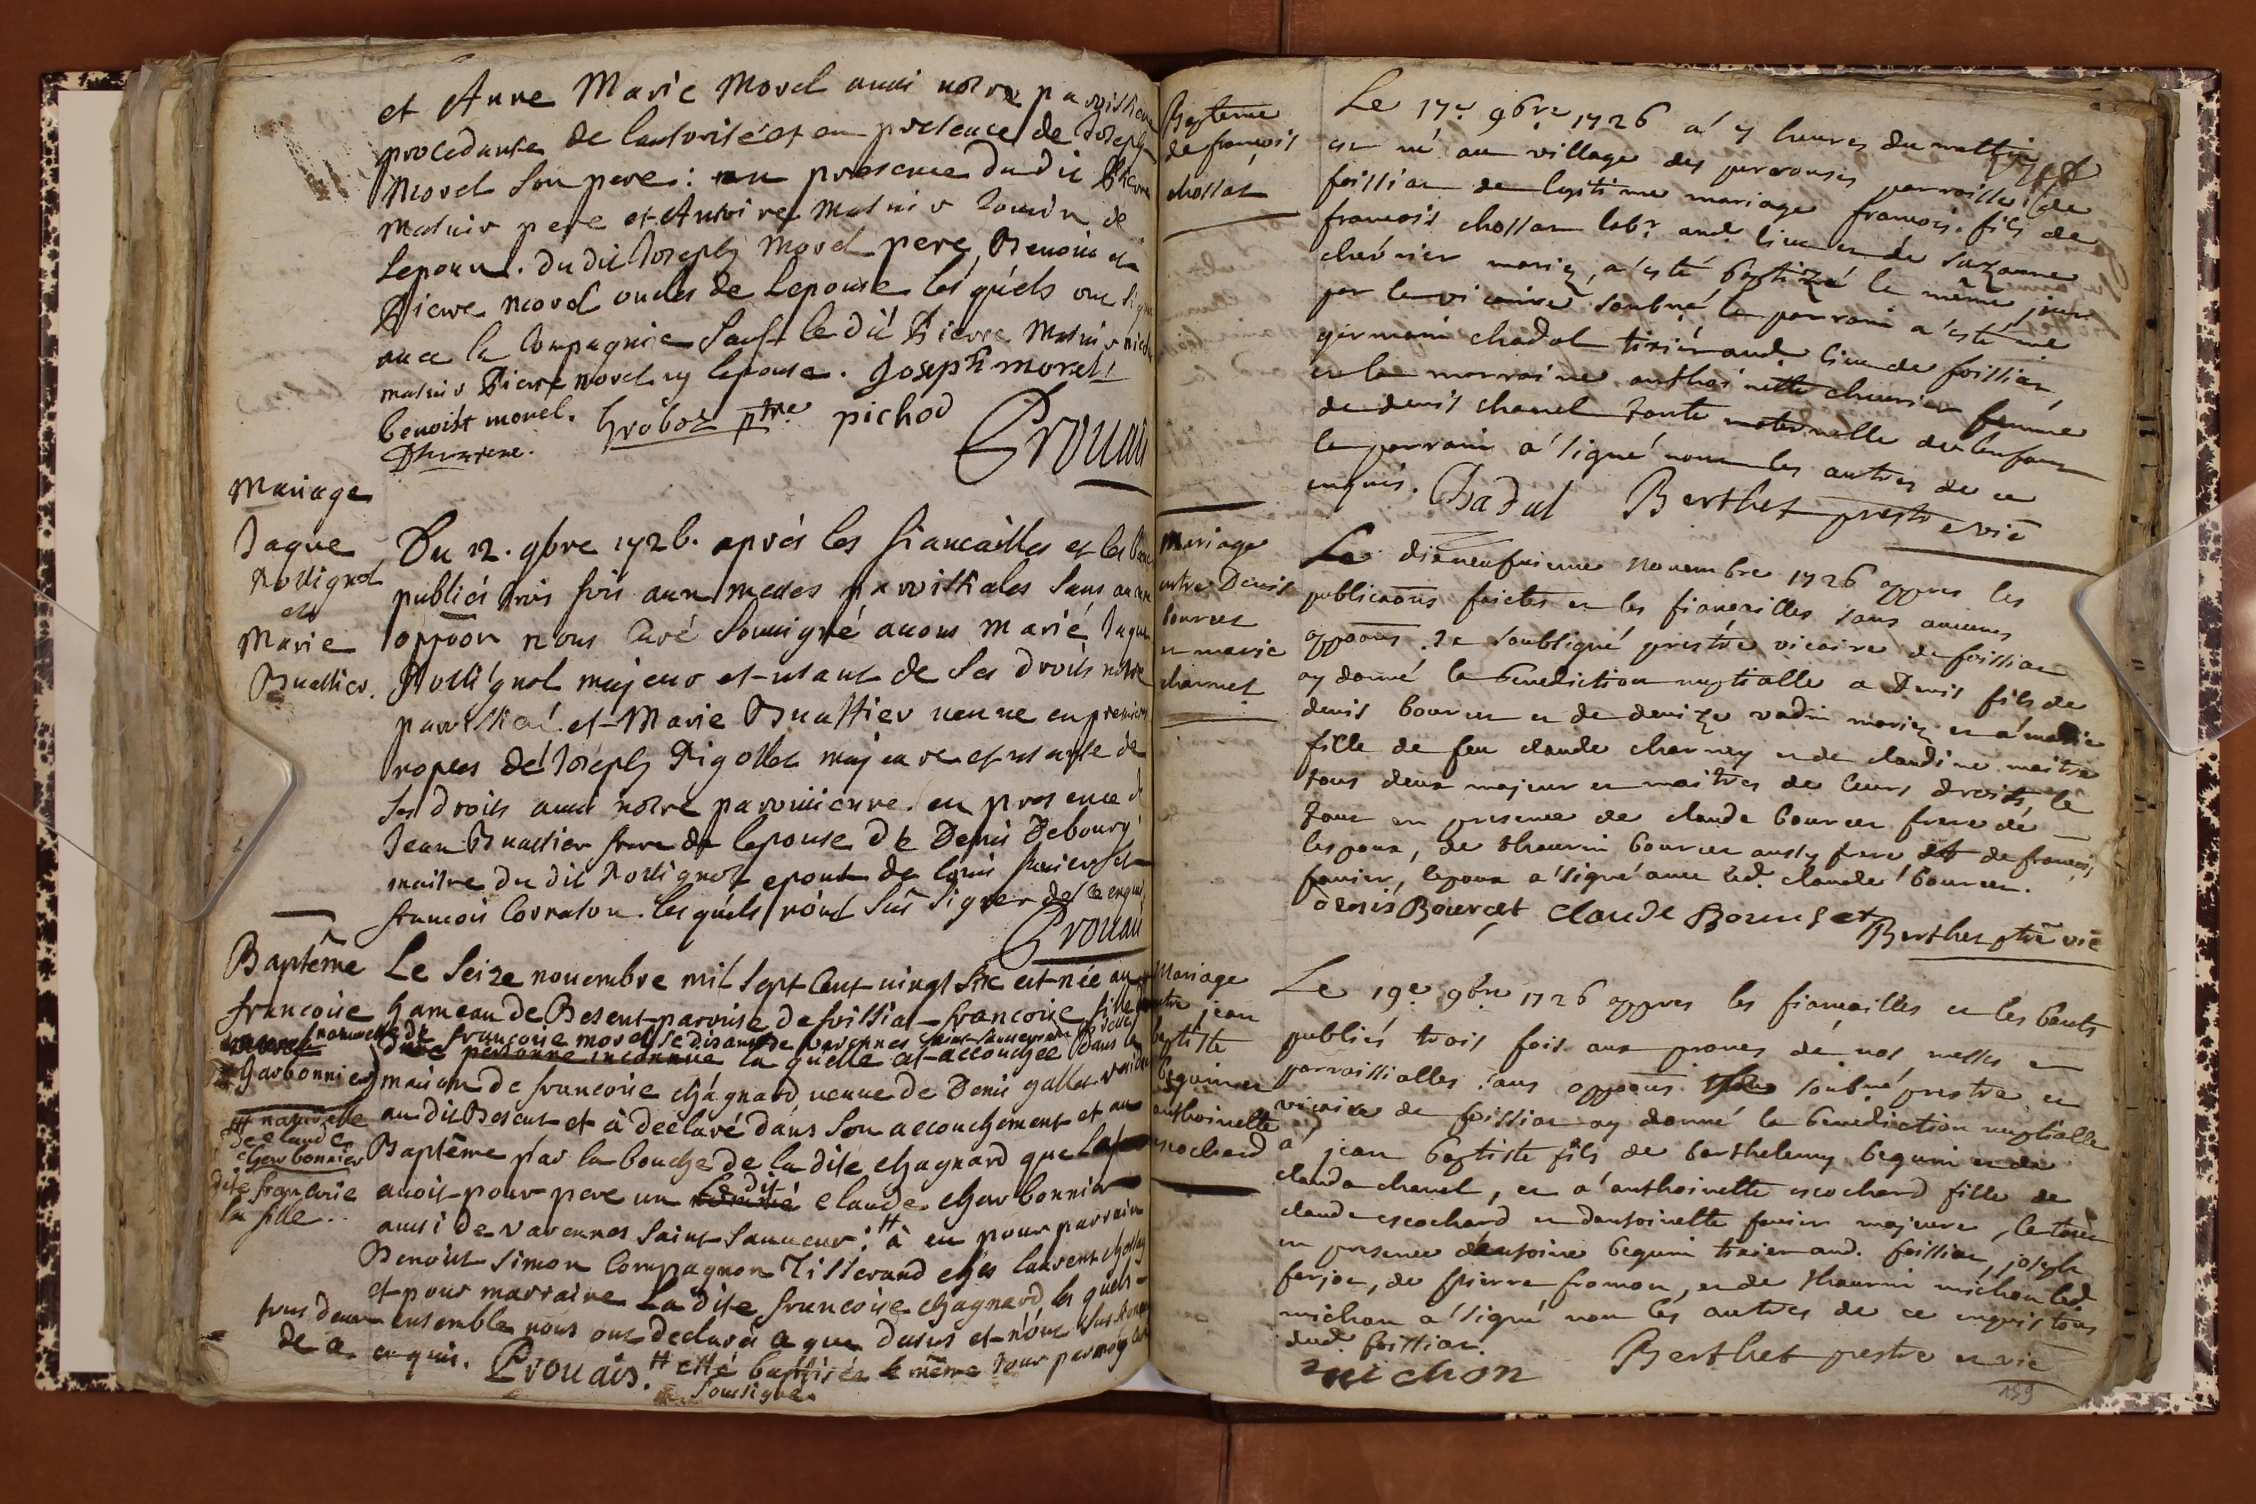 et Anne Marie Morel aussi notre paroissienne
procedante de lautorité et en presence de Joseph
Morel son pere : en presence du dit Pierre
Matnir pere et Antoine Matnir cousin de
Lepoux. du dit Joseph Morel pere, Benoist et
Pierre Morel oncles de Lepouse lesquels ont signé
auec la Compagnie sauf le dit Pierre Matnir
matnir Pierre morel ny lepouse. Joseph morel
benoist morel. Groboz ptre pichod
Erouais
Mariage
Jaque
Rossignol
et
Marie
Buattier.
Du 12. 9bre 1726. aprés les fiancailles et les bans
publiés trois fois aux messes paroissiales sans aucune
oppoõn nous Curé soussigné auons marié Jaque
Rossignol majeur et usant de ses droits notre
paroissien et Marie Buattier veuue en premieres
nopces de Joseph Rigollet majeure et usante de
ses droits aussi notre paroissienne. en presence de
Jean Buattier frere de lepouse de Denis Debourg
maitre du dit Rossignol epoux de Louis et
francois Corraton. lesquels n'ont sus signer de ce enquis
Erouais
Baptême
francoise
naturelle de
Charbonnier
Le seize nouembre mil sept cent vingt six est née au
hameau de Besent paroisse de foissiat francoise fille
francoise morel se disante de varennes saint sauueur
personne inconnue la quelle est accouchée dans la
maison de francoise chagnard veuue de Denis gallet
au dit Besent et à declaré dans son accouchement et au
Baptême par la bouche de la dite chagnard que
auoit pour pere un le dit claude charbonnier
aussi de varennes saint sauueur : # à eu pour parrain
Benoist Simon Compagnon Tisserand chés laurent
et pour marraine La dite francoise chagnard les quels
tous deux ensemble nous ont declaré a que dessus et n'ont sus signer
de ce enquis. Erouais. # esté baptisée le même jour par moy
soussigné
# naturelle
de claude
charbonnier
dite francoise
la fille.
Baptesme
de françois
chossat
Le 17e 9bre 1726 a 7 heures du mattin
est né au village des perrouses parroisse de
foissiat de legitime mariage françois fils de
françois chossat labr aud. lieu et de suzanne
cheurier mariez, a esté baptizé le même jour
par le vicaire soubné, le parrain a esté me
germain chadal tixier aud. lieu de foissiat,
et la marraine anthoinette cheurier femme
de denis chanel tante maternelle de lenfant
le parrain a signé non les autres de ce
enquis. Chadal Berthet prestre vic
Mariage
entre Denis
bourcet
et marie
charnet
Le dixneufuieme nouembre 1726 appres les
publicaõns faictes et les fiançailles sans aucunes
oppoõns. Je soubsigné prestre vicaire de foissiat
ay donné la benediction nuptialle a Denis fils de
denis bourcet et de denize vadin mariez et a marie
fille de feu claude charney et de claudine maitre
tous deux majeur et maitres de leurs droits, le
tout en presence de claude bourcet frere de
lespoux, de thaurin bourcet aussy frere et de françois
fauier, lepoux a signé auec led. claude bourcet.
denis Bourcet claude Bourset
Berthet ptre vic
Mariage
entre jean
baptiste
beguin et
anthoinette
escochard
Le 19e 9bre 1726 appres les fiançailles et les bants
publiés trois fois aux prones de nos messes
parroissialles sans oppoõns soubné prestre et
vicaire de foissiat ay donné la benediction nuptialle
a jean baptiste fils de barthelemy beguin et de
clauda chanel, et a anthoinette escochard fille de
claude escochard et dantoinette fauier majeure, le tout
en presence dantoine beguin tixier aud. foissiat, joseph
ferjoc, de pierre fromon, et de thaurin michon led.
michon a signé non les autres de ce enquis tous
dud. foissiat.
michon
Berthet prestre et vic
159